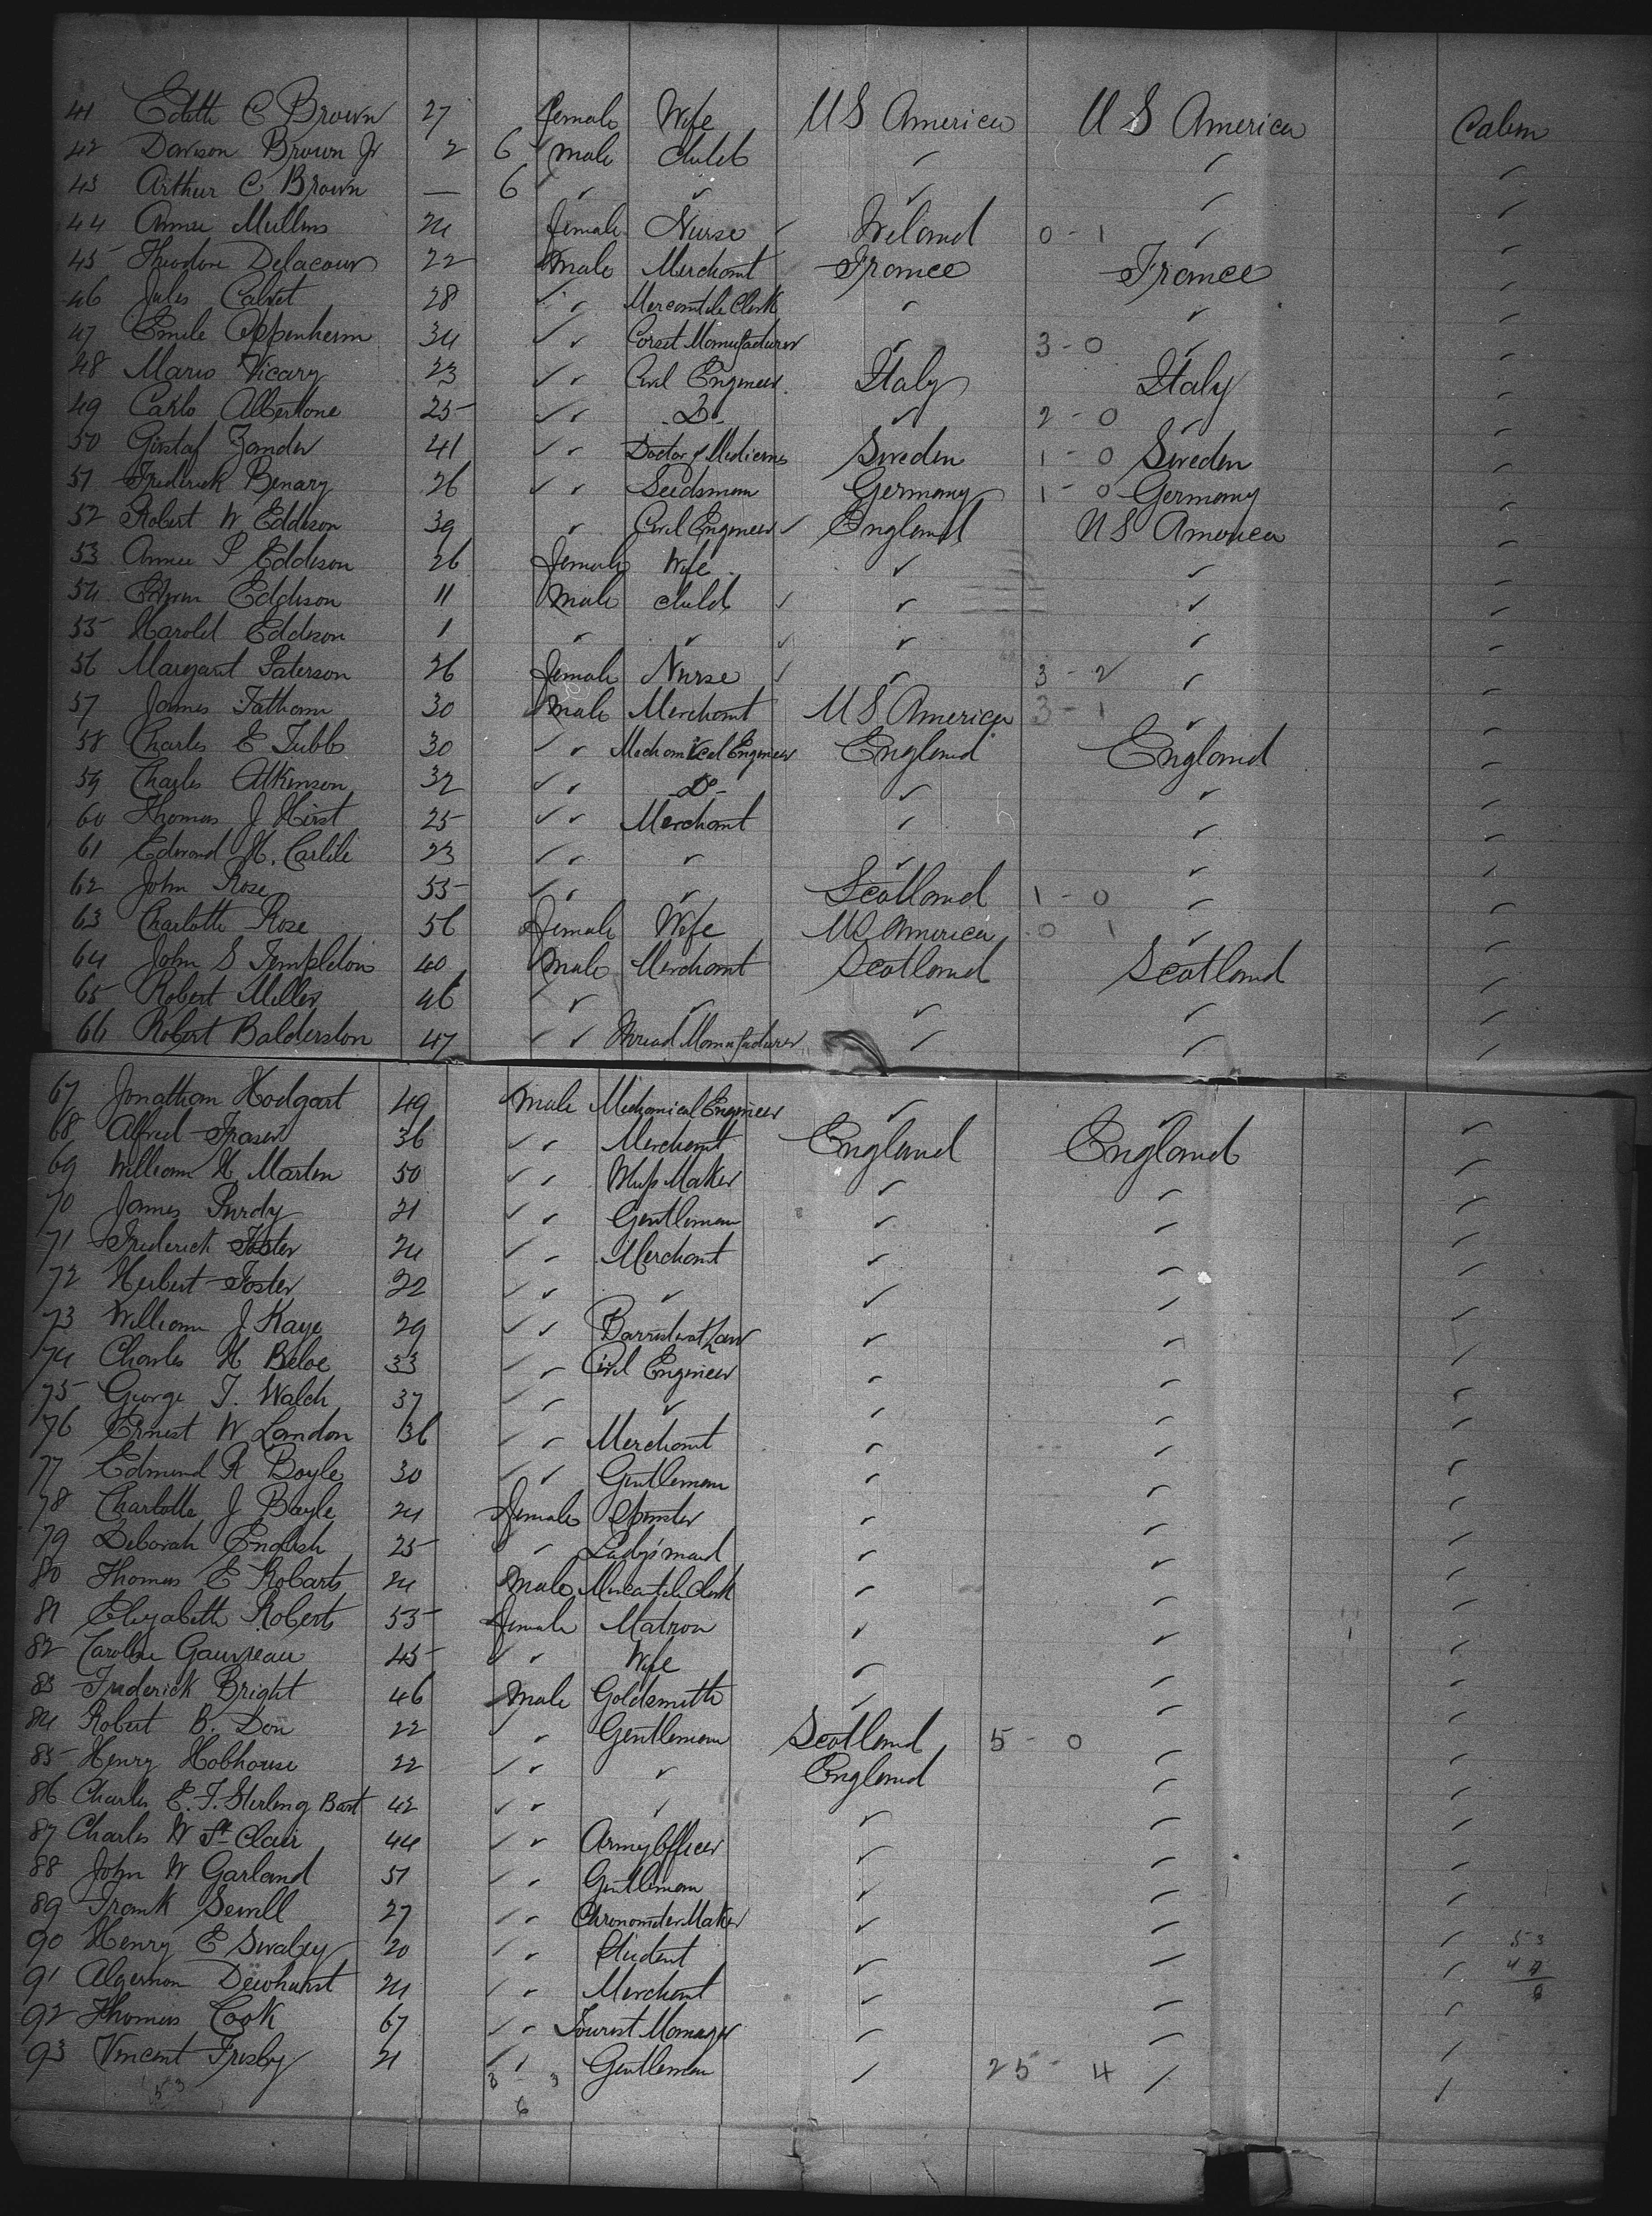 41 Edith C Brown 27 female Wife U S America U S America Cabin
42 Davison Brown Jr 2 6 male child ✓ ✓ ✓
43 Arthur C Brown — 6 ✓ ✓ ✓ ✓ ✓ ✓
44 Annie Mullins 24 female Nurse ✓ Ireland 0 - 1 ✓ ✓
45 Theodore Delacour 22 male Merchant France France ✓
46 Jules Calvet 28 ✓ ✓ Mercantile Clerk ✓ ✓ ✓
47 Emile Oppenheim 34 ✓ ✓ Corset Manufacturer ✓ 3 - 0 ✓ ✓
48 Mario Vicary 23 ✓ ✓ Civil Engineer Italy Italy ✓
49 Carlo Albertone 25 ✓ ✓ Do ✓ 2 - 0 ✓ ✓
50 Gustaf Zander 41 ✓ ✓ Doctor of Medicine Sweden 1 - 0 Sweden ✓
51 Frederick Benary 26 ✓ ✓ Seedsman Germany 1 - 0 Germany ✓
52 Robert W Eddison 39 ✓ Civil Engineer ✓ England U S America ✓
53 Annie P Eddison 26 female Wife ✓ ✓ ✓
54 Eddison 11 male child ✓ ✓ ✓ ✓
55 Harold Eddison 1 ✓ ✓ ✓ ✓ ✓ ✓
56 Margaret Paterson 26 female Nurse ✓ ✓ 3 - 2 ✓ ✓
57 James Tatham 30 male Merchant U S America 3 - 1 ✓ ✓
58 Charles E Tubbs 30 ✓ ✓ Mechanical Engineer England England ✓
59 Charles Atkinson 32 ✓ ✓ Do ✓ ✓ ✓
60 Thomas J Hirst 25 ✓ ✓ Merchant ✓ ✓ ✓
61 Edward H. Carlile 23 ✓ ✓ ✓ ✓ ✓ ✓
62 John Rose 55 ✓ ✓ ✓ Scotland 1 - 0 ✓ ✓
63 Charlotte Rose 56 female Wife U S America 0 1 ✓ ✓
64 John S Templeton 40 male Merchant Scotland Scotland ✓
65 Robert Miller 46 ✓ ✓ ✓ ✓ ✓ ✓
66 Robert Balderston 47 ✓ ✓ Thread Manufacturer ✓ ✓ ✓
67 Jonathan Hodgart 49 male Mechanical Engineer ✓ ✓ ✓
68 Alfred Fraser 36 ✓ ✓ Merchant England England ✓
69 William H Martin 50 ✓ ✓ Whip Maker ✓ ✓ ✓
70 James Purdy 21 ✓ ✓ Gentleman ✓ ✓ ✓
71 Frederick Foster 24 ✓ ✓ Merchant ✓ ✓ ✓
72 Herbert Foster 22 ✓ ✓ ✓ ✓ ✓ ✓
73 William J Kaye 29 ✓ ✓ Barrister at Law ✓ ✓ ✓
74 Charles H Beloe 33 ✓ ✓ Civil Engineer ✓ ✓ ✓
75 George T. Walch 37 ✓ ✓ ✓ ✓ ✓ ✓
76 Ernest W Landon 36 ✓ ✓ Merchant ✓ ✓ ✓
77 Edmund R Boyle 30 ✓ ✓ Gentleman ✓ ✓ ✓
78 Charlotte J Boyle 24 female Spinster ✓ ✓ ✓
79 Deborah English 25 ✓ Lady's maid ✓ ✓ ✓
80 Thomas E Robarts 24 male Mercantile Clerk ✓ ✓ ✓
81 Elizabeth Roberts 55 female Matron ✓ ✓ ✓
82 Caroline Gauvreau 45 ✓ ✓ Wife ✓ ✓ ✓
83 Frederick Bright 46 male Goldsmith ✓ ✓ ✓
84 Robert B. Don 22 ✓ ✓ Gentleman Scotland 5 - 0 ✓ ✓
85 Henry Hobhouse 22 ✓ ✓ ✓ England ✓ ✓
86 Charles E. F. Sterling Bart 42 ✓ ✓ ✓ ✓ ✓ ✓
87 Charles W St Clair 44 ✓ ✓ Army Officer ✓ ✓ ✓
88 John W Garland 51 ✓ ✓ Gentleman ✓ ✓ ✓
89 Frank Sewell 27 ✓ ✓ Chronometer Maker ✓ ✓ ✓
90 Henry E Swabey 20 ✓ ✓ Student ✓ ✓ ✓ 53
91 Algernon Dewhurst 24 ✓ ✓ Merchant ✓ ✓ ✓ 47
92 Thomas Cook 67 ✓ ✓ Tourist Manager ✓ ✓ ✓ 6
93 Vincent Frisby 21 ✓ ✓ Gentleman ✓ 25 - 4 ✓ ✓
53 3 3
6